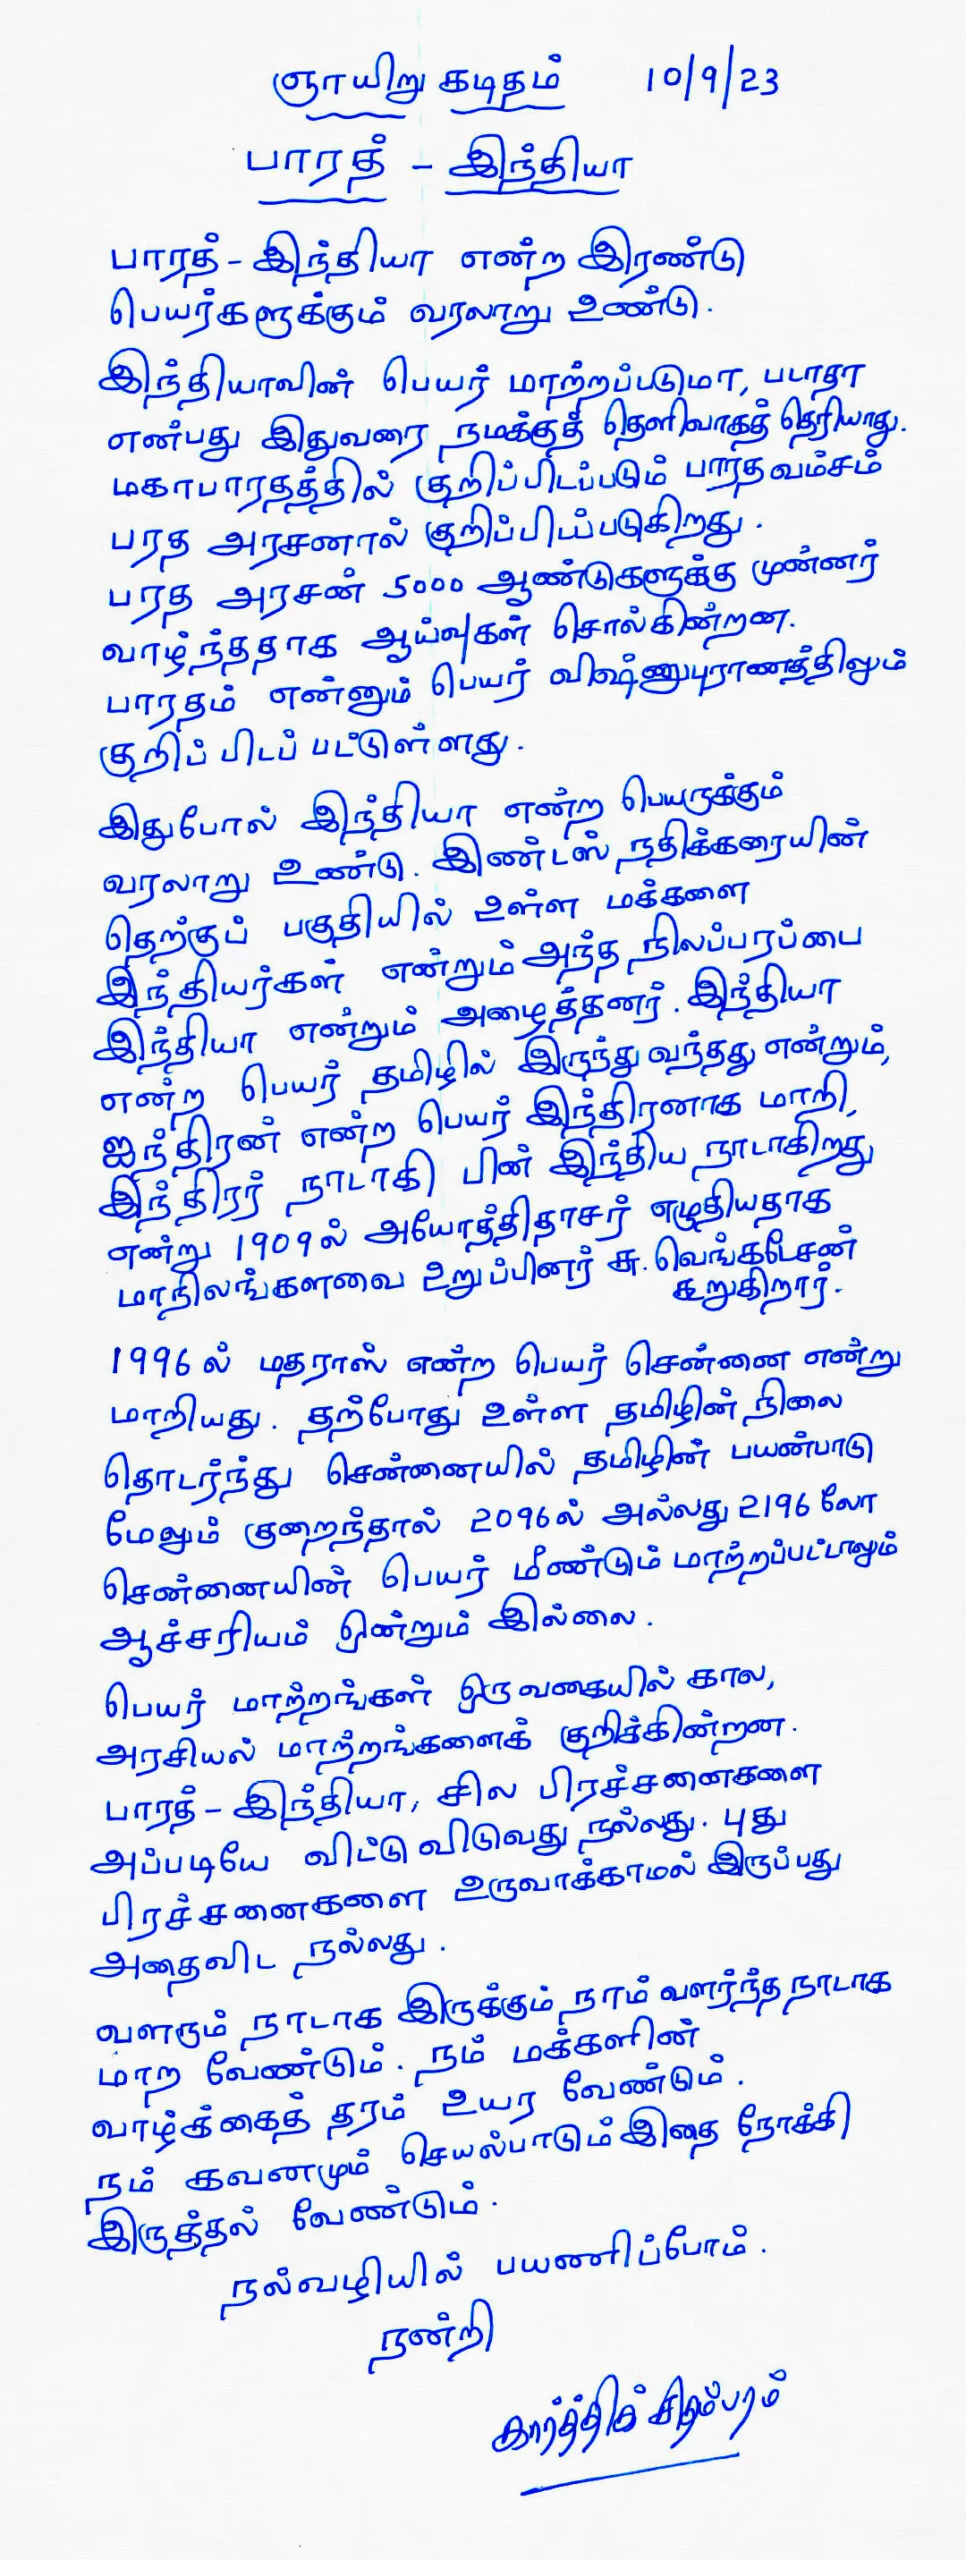 ஞாயிறு கடிதம் 10/9/23
பாரத் - இந்தியா
பாரத் - இந்தியா என்ற இரண்டு
பெயர்களுக்கும் வரலாறு உண்டு.
இந்தியாவின் பெயர் மாற்றப்படுமா, படாதா
என்பது இதுவரை நமக்குத் தெளிவாகத் தெரியாது.
மகாபாரதத்தில் குறிப்பிடப்படும் பாரத வம்சம்
பரத அரசனால் குறிப்பிடப்படுகிறது.
பரத அரசன் 5000 ஆண்டுகளுக்கு முன்னர்
வாழ்ந்ததாக ஆய்வுகள் சொல்கின்றன.
பாரதம் என்னும் பெயர் விஷ்ணுபுராணத்திலும்
குறிப்பிடப்பட்டுள்ளது.
இதுபோல் இந்தியா என்ற பெயருக்கும்
வரலாறு உண்டு. இண்டஸ் நதிக்கரையின்
தெற்குப் பகுதியில் உள்ள மக்களை
இந்தியர்கள் என்றும் அந்த நிலப்பரப்பை
இந்தியா என்றும் அழைத்தனர். இந்தியா
என்ற பெயர் தமிழில் இருந்து வந்தது என்றும்,
ஐந்திரன் என்ற பெயர் இந்திரனாக மாறி,
இந்திரர் நாடாகி பின் இந்திய நாடாகிறது
என்று 1909ல் அயோத்திதாசர் எழுதியதாக
மாநிலங்களவை உறுப்பினர் சு. வெங்கடேசன்
கூறுகிறார்.
1996ல் மதராஸ் என்ற பெயர் சென்னை என்று
மாறியது. தற்போது உள்ள தமிழின் நிலை
தொடர்ந்து சென்னையில் தமிழின் பயன்பாடு
மேலும் குறைந்தால் 2096ல் அல்லது 2196லோ
சென்னையின் பெயர் மீண்டும் மாற்றப்பட்டாலும்
ஆச்சரியம் ஒன்றும் இல்லை.
பெயர் மாற்றங்கள் ஒருவகையில் கால,
அரசியல் மாற்றங்களைக் குறிக்கின்றன.
பாரத் - இந்தியா, சில பிரச்சனைகளை
அப்படியே விட்டு விடுவது நல்லது. புது
பிரச்சனைகளை உருவாக்காமல் இருப்பது
அதைவிட நல்லது.
வளரும் நாடாக இருக்கும் நாம் வளர்ந்த நாடாக
மாற வேண்டும். நம் மக்களின்
வாழ்க்கைத் தரம் உயர வேண்டும்.
நம் கவனமும் செயல்பாடும் இதை நோக்கி
இருத்தல் வேண்டும்.
நல்வழியில் பயணிப்போம்.
நன்றி
கார்த்திக் சிதம்பரம்